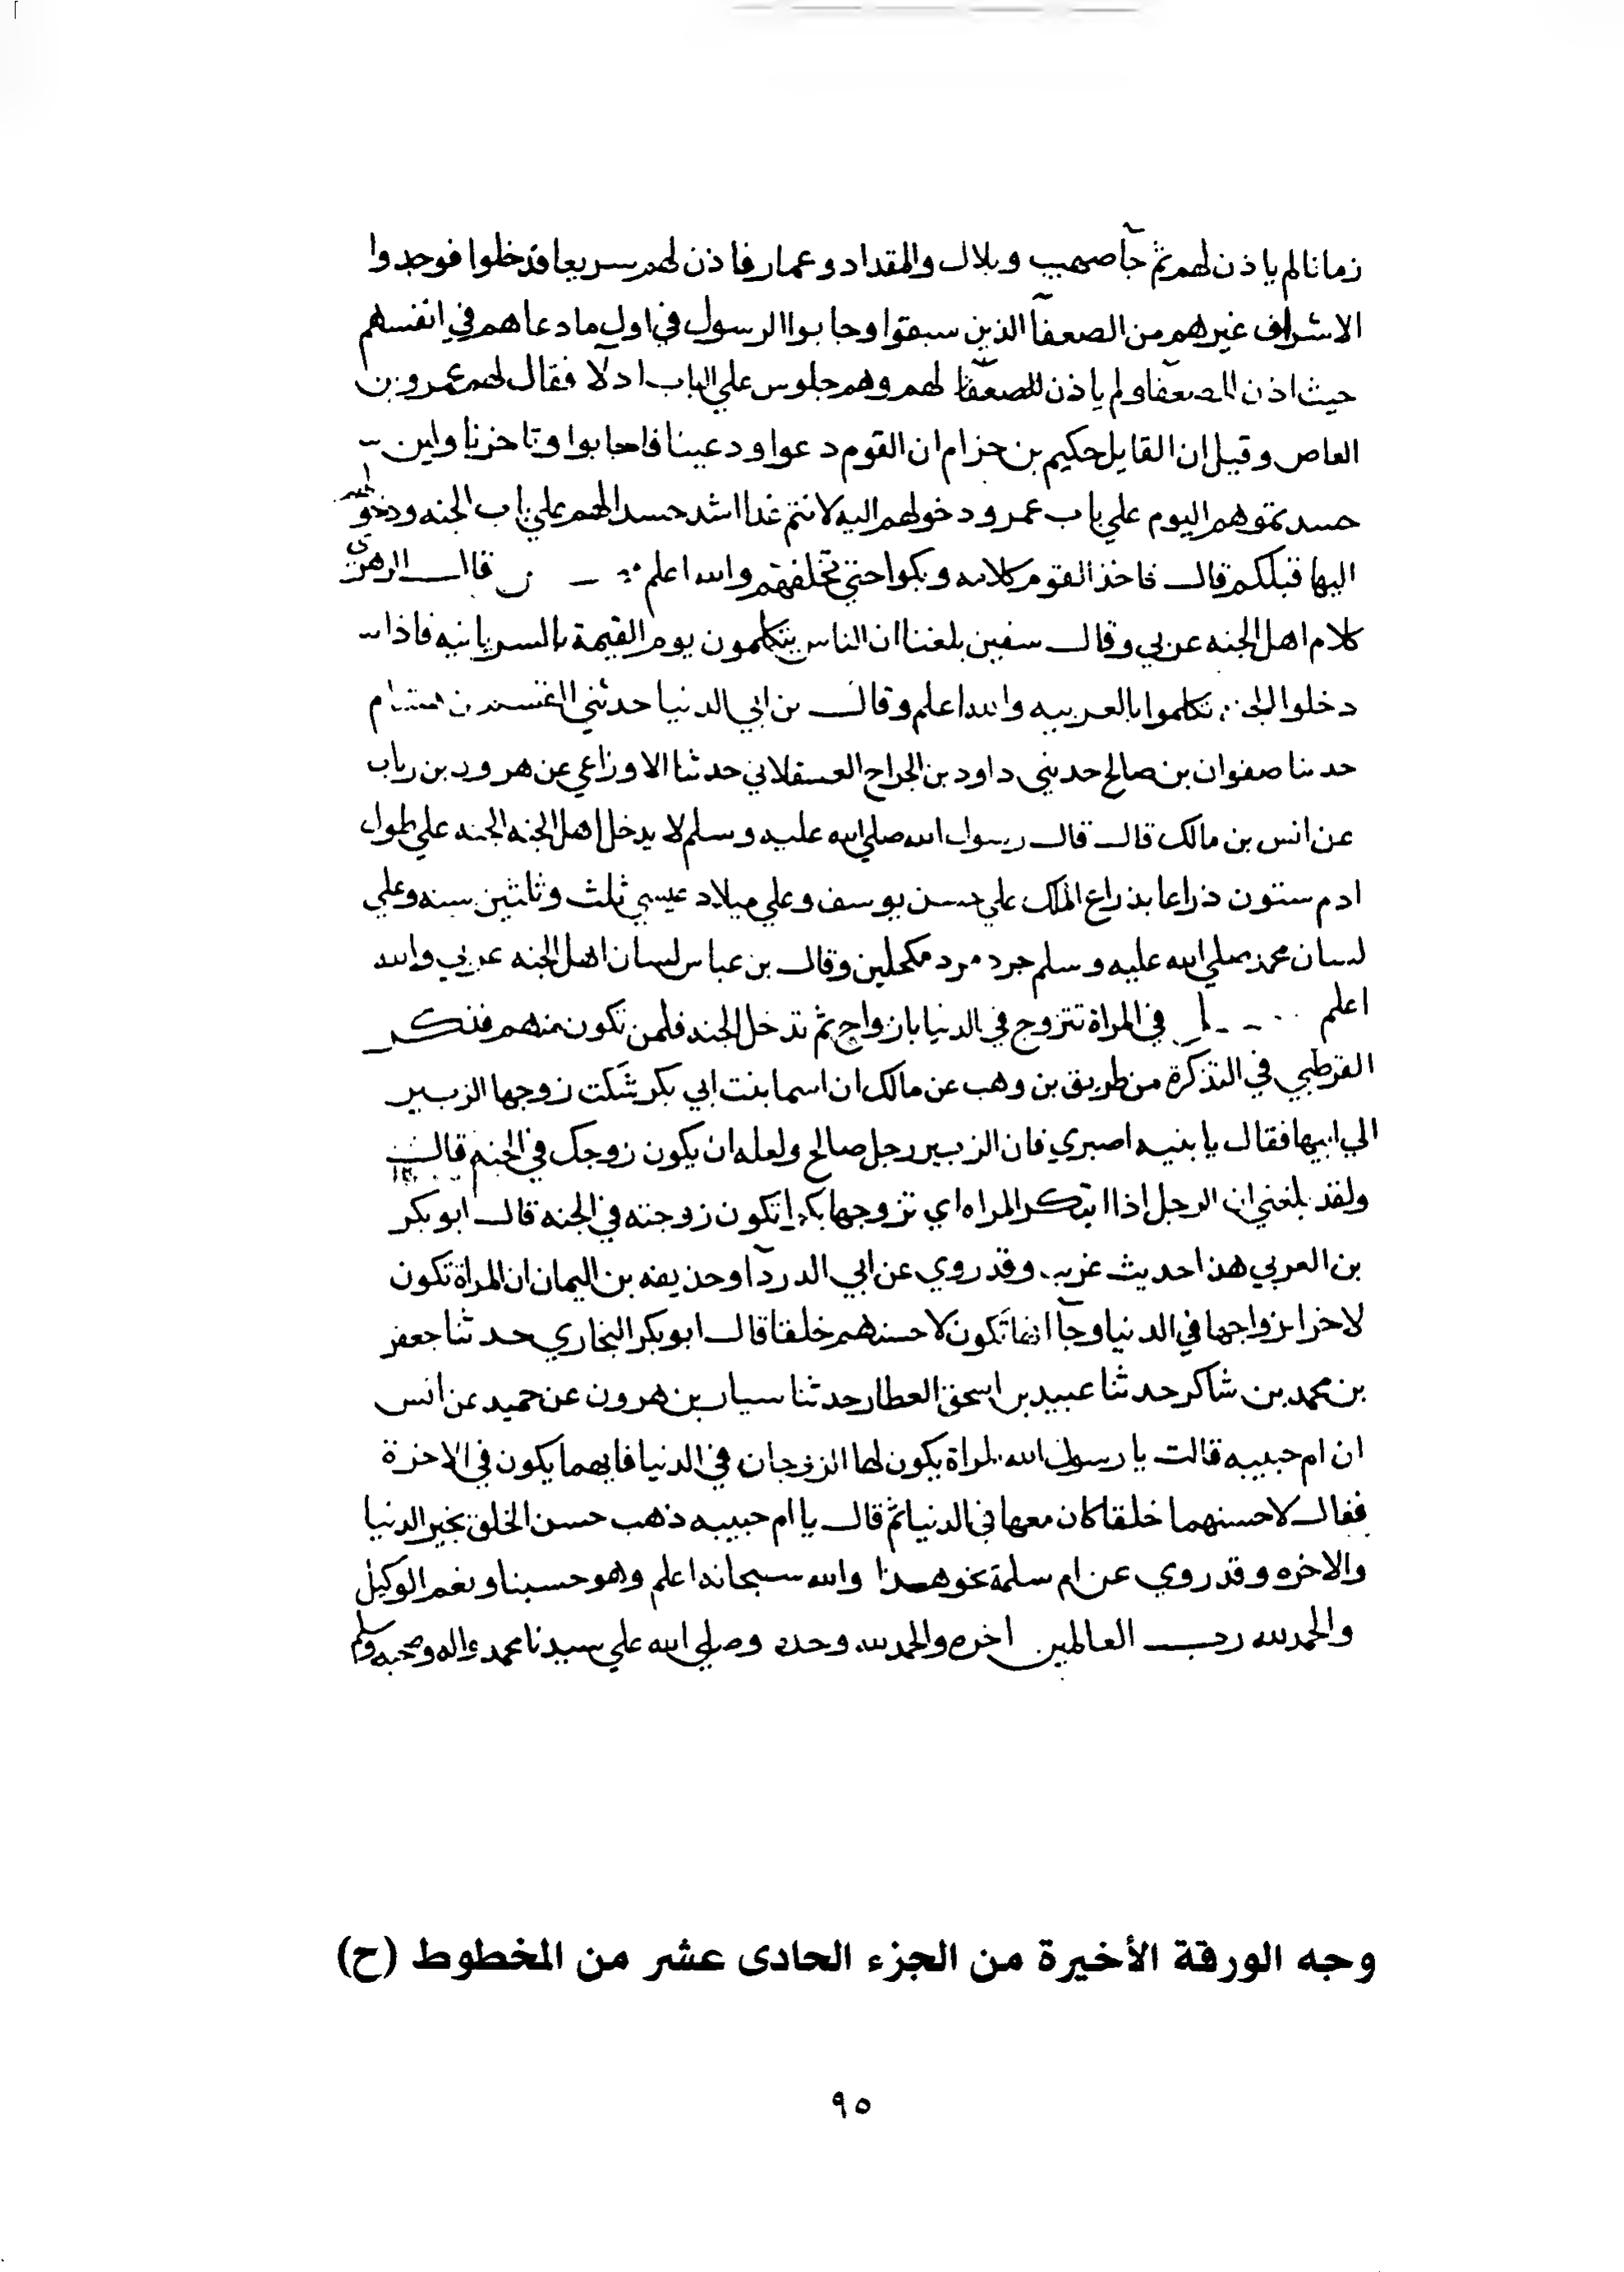 زمانا لم ياذن لهم ثم جآ صهيب وبلال والمقداد وعمار فاذن لهم سريعا فدخلوا فوجدوا
الاشراف غيرهم من الضعفآ الذين سبقوا وجابوا الرسول في اول ما دعاهم في انفسهم
حيث اذن للضعفا ولم ياذن لهم وهم جلوس علي الباب اد لآ فقال لهم عمرو بن
العاص وقيل ان القايل حكيم بن حزام ان القوم دعوا ودعينا فاجابوا وتاخرنا ولين
حسدتموهم اليوم علي باب عمر ودخولهم اليه لانتم غدا اشد حسدا لهم علي باب الجنه ودخولهم
اليها قبلكم قال فاخذ القوم كلامه وبكوا حتي والله اعلم قال الزهري
كلام اهل الجنه عربي وقال سفين بلغنا ان الناس يتكلمون يوم القيمة بالسريانيه فاذا
دخلوا الجنه تكلموا بالعربيه والله اعلم وقال بن ابي الدنيا حدثني القسم بن هشام
حدثنا صفوان بن صالح حدثني داود بن الجراح العسقلاني حدثنا الاوزاعي عن هرون بن رياب
عن انس بن مالك قال قال رسول الله صلي الله عليه وسلم لا يدخل اهل الجنه الجنه علي طول
ادم ستون ذراعا بذراع الملك علي حسن يوسف وعلي ميلاد عيسي ثلث وثلثين سنه وعلي
لسان محمد صلي الله عليه وسلم جرد مرد مكحلين وقال بن عباس لسان اهل الجنه عربي والله
اعلم في المراة تتزوج في الدنيا بازواج ثم تدخل الجنه فلمن تكون منهم فذكر
القرطبي في التذكرة من طريق بن وهب عن مالك ان اسما بنت ابي بكر شكت زوجها الزبير
الي ابيها فقال يا بنيه اصبري فان الزبير رجل صالح ولعله ان يكون زوجك في الجنه قال
ولقد بلغني ان الرجل اذا ابتكر المراه اي تزوجها بكرا تكون زوجته في الجنه قال ابو بكر
بن العربي هذا حديث غريب وقد روي عن ابي الدردآ وحذيفه بن اليمان ان المراة تكون
لاخر ازواجها في الدنيا وجآ انها تكون لاحسنهم خلقا قال ابو بكر النجاري حدثنا جعفر
بن محمد بن شاكر حدثنا عبيد بن اسحق العطار حدثنا سيار بن هرون عن حميد عن انس
ان ام حبيبه قالت يا رسول الله المراة يكون لها الزوجان في الدنيا فايهما يكون في الاخرة
فقال لاحسنهما خلقا كان معها في الدنيا ثم قال يا ام حبيبه ذهب حسن الخلق بخير الدنيا
والاخره وقد روي عن ام سلمة نحو هذا والله سبحانه اعلم وهو حسبنا ونعم الوكيل
والحمد لله رب العالمين اخره والحمد لله وحده وصلي الله علي سيدنا محمد واله وصحبه وسلم
وجه الورقة الأخيرة من الجزء الحادى عشر من المخطوط (ح)
٩٥